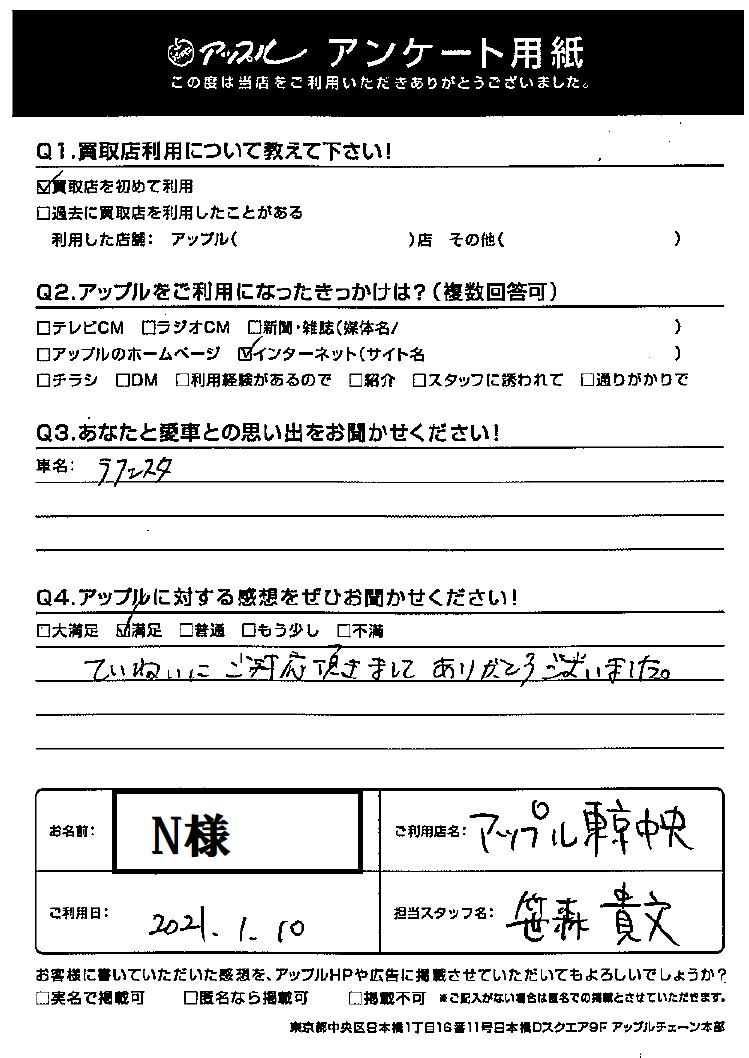 アップル アンケート用紙
この度は当店をご利用いただきありがとうございました。
Q1.買取店利用について教えて下さい!
☑買取店を初めて利用
□過去に買取店を利用したことがある
利用した店舗: アップル( )店 その他( )
Q2.アップルをご利用になったきっかけは?(複数回答可)
□テレビCM □ラジオCM □新聞・雑誌(媒体名/ )
□アップルのホームページ ☑インターネット(サイト名 )
□チラシ □DM □利用経験があるので □紹介 □スタッフに誘われて □通りがかりで
Q3.あなたと愛車との思い出をお聞かせください!
車名: ラフェスタ
Q4.アップルに対する感想をぜひお聞かせください!
□大満足 ☑満足 □普通 □もう少し □不満
ていねいにご対応頂きましてありがとうございました。
お名前: N様 ご利用店名: アップル東京中央
ご利用日: 2021.1.10 担当スタッフ名: 笹森 貴文
お客様に書いていただいた感想を、アップルHPや広告に掲載させていただいてもよろしいでしょうか?
□実名で掲載可 □匿名なら掲載可 □掲載不可 ※ご記入がない場合は匿名での掲載とさせていただきます。
東京都中央区日本橋1丁目16番11号日本橋Dスクエア9F アップルチェーン本部